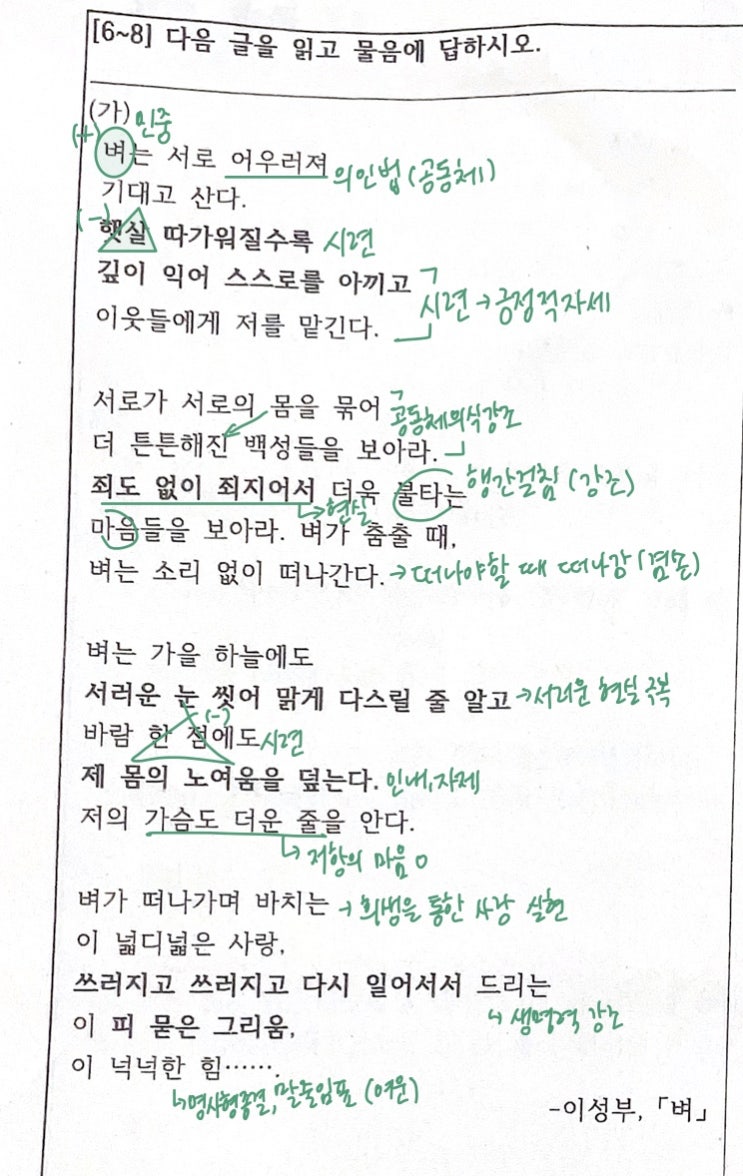 [6~8] 다음 글을 읽고 물음에 답하시오.
(가) 민중
(+) 벼는 서로 어우러져 의인법 (공동체)
기대고 산다.
(-) 햇살 따가워질수록 시련
깊이 익어 스스로를 아끼고
이웃들에게 저를 맡긴다. 시련 → 긍정적자세
서로가 서로의 몸을 묶어 공동체의식강조
더 튼튼해진 백성들을 보아라.
죄도 없이 죄지어서 더욱 불타는 행간걸침 (강조)
→현실
마음들을 보아라. 벼가 춤출 때,
벼는 소리 없이 떠나간다. → 떠나야할 때 떠나감 (겸손)
벼는 가을 하늘에도
서러운 눈 씻어 맑게 다스릴 줄 알고 → 서러운 현실 극복
(-)
바람 한 점에도 시련
제 몸의 노여움을 덮는다. 인내, 자제
저의 가슴도 더운 줄을 안다.
↳ 저항의 마음 O
벼가 떠나가며 바치는 → 희생을 통한 사랑 실현
이 넓디넓은 사랑,
쓰러지고 쓰러지고 다시 일어서서 드리는
↳ 생명력 강조
이 피 묻은 그리움,
이 넉넉한 힘…….
↳명사형종결, 말줄임표 (여운)
-이성부, 「벼」